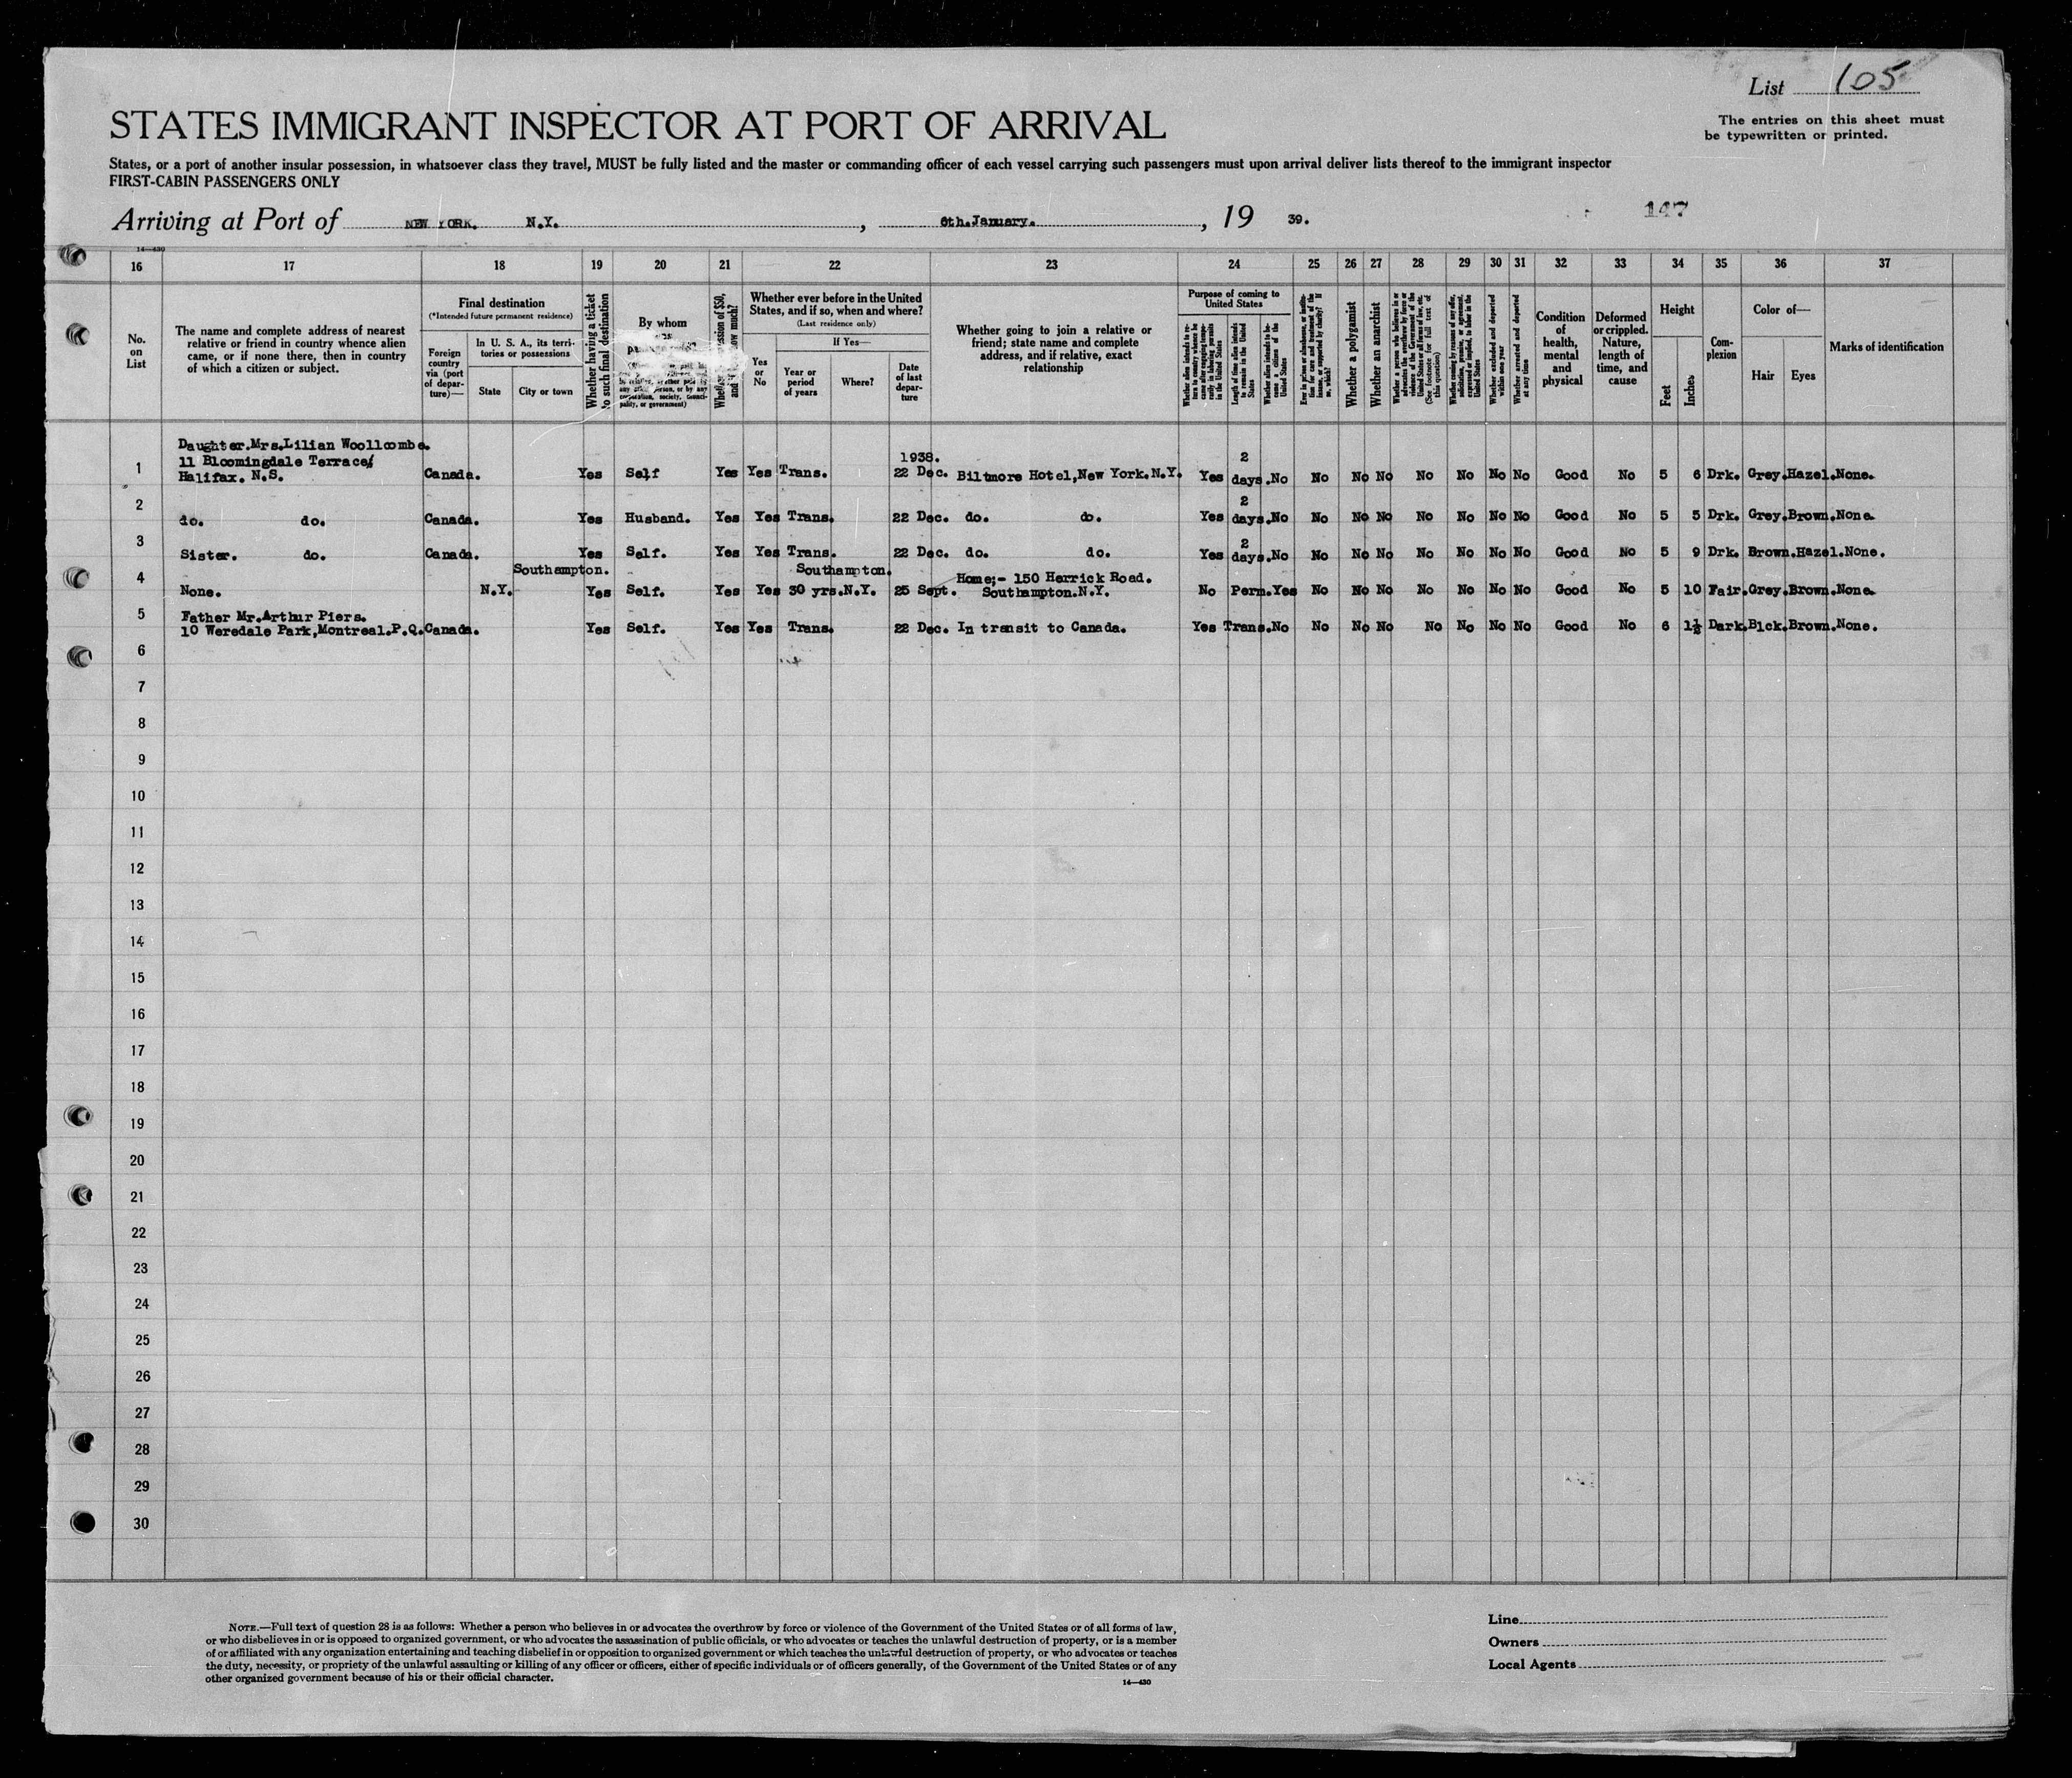 List 105
STATES IMMIGRANT INSPECTOR AT PORT OF ARRIVAL
The entries on this sheet must
be typewritten or printed.
States, or a port of another insular possession, in whatsoever class they travel, MUST be fully listed and the master or commanding officer of each vessel carrying such passengers must upon arrival deliver lists thereof to the immigrant inspector
FIRST-CABIN PASSENGERS ONLY
Arriving at Port of NEW YORK. N.Y. , 6th.January. , 19 39.
147
14—430
16 17 18 19 20 21 22 23 24 25 26 27 28 29 30 31 32 33 34 35 36 37
No. on List
The name and complete address of nearest relative or friend in country whence alien came, or if none there, then in country of which a citizen or subject.
Final destination
(*Intended future permanent residence)
Foreign country via (port of departure)—
In U. S. A., its territories or possessions
State
City or town
Whether having a ticket to such final destination
By whom
Whether ever before in the United States, and if so, when and where?
(Last residence only)
Yes or No
If Yes—
Year or period of years
Where?
Date of last departure
Whether going to join a relative or friend; state name and complete address, and if relative, exact relationship
Purpose of coming to United States
Whether a polygamist
Whether an anarchist
Whether excluded and deported within one year
Whether arrested and deported at any time
Condition of health, mental and physical
Deformed or crippled. Nature, length of time, and cause
Height
Feet
Inches
Complexion
Color of—
Hair
Eyes
Marks of identification
Daughter.Mrs.Lilian Woollcombe.
11 Bloomingdale Terrace,
1938. 2
1 Halifax. N.S. Canada. Yes Self Yes Yes Trans. 22 Dec. Biltmore Hotel,New York.N.Y. Yes days.No No No No No No No No Good No 5 6 Drk. Grey.Hazel.None.
2
2 do. do. Canada. Yes Husband. Yes Yes Trans. 22 Dec. do. do. Yes days.No No No No No No No No Good No 5 5 Drk. Grey.Brown.None.
2
3 Sister. do. Canada. Yes Self. Yes Yes Trans. 22 Dec. do. do. Yes days.No No No No No No No No Good No 5 9 Drk. Brown.Hazel.None.
Southampton. Southampton. Home;- 150 Herrick Road.
4 None. N.Y. Yes Self. Yes Yes 30 yrs.N.Y. 25 Sept. Southampton.N.Y. No Perm.Yes No No No No No No No Good No 5 10 Fair.Grey.Brown.None.
Father Mr.Arthur Piers.
5 10 Weredale Park,Montreal.P.Q.Canada. Yes Self. Yes Yes Trans. 22 Dec. In transit to Canada. Yes Trans.No No No No No No No No Good No 6 1½ Dark.Blck.Brown.None.
6
7
8
9
10
11
12
13
14
15
16
17
18
19
20
21
22
23
24
25
26
27
28
29
30
NOTE.—Full text of question 28 is as follows: Whether a person who believes in or advocates the overthrow by force or violence of the Government of the United States or of all forms of law,
or who disbelieves in or is opposed to organized government, or who advocates the assassination of public officials, or who advocates or teaches the unlawful destruction of property, or is a member
of or affiliated with any organization entertaining and teaching disbelief in or opposition to organized government or which teaches the unlawful destruction of property, or who advocates or teaches
the duty, necessity, or propriety of the unlawful assaulting or killing of any officer or officers, either of specific individuals or of officers generally, of the Government of the United States or of any
other organized government because of his or their official character.
14—430
Line
Owners
Local Agents